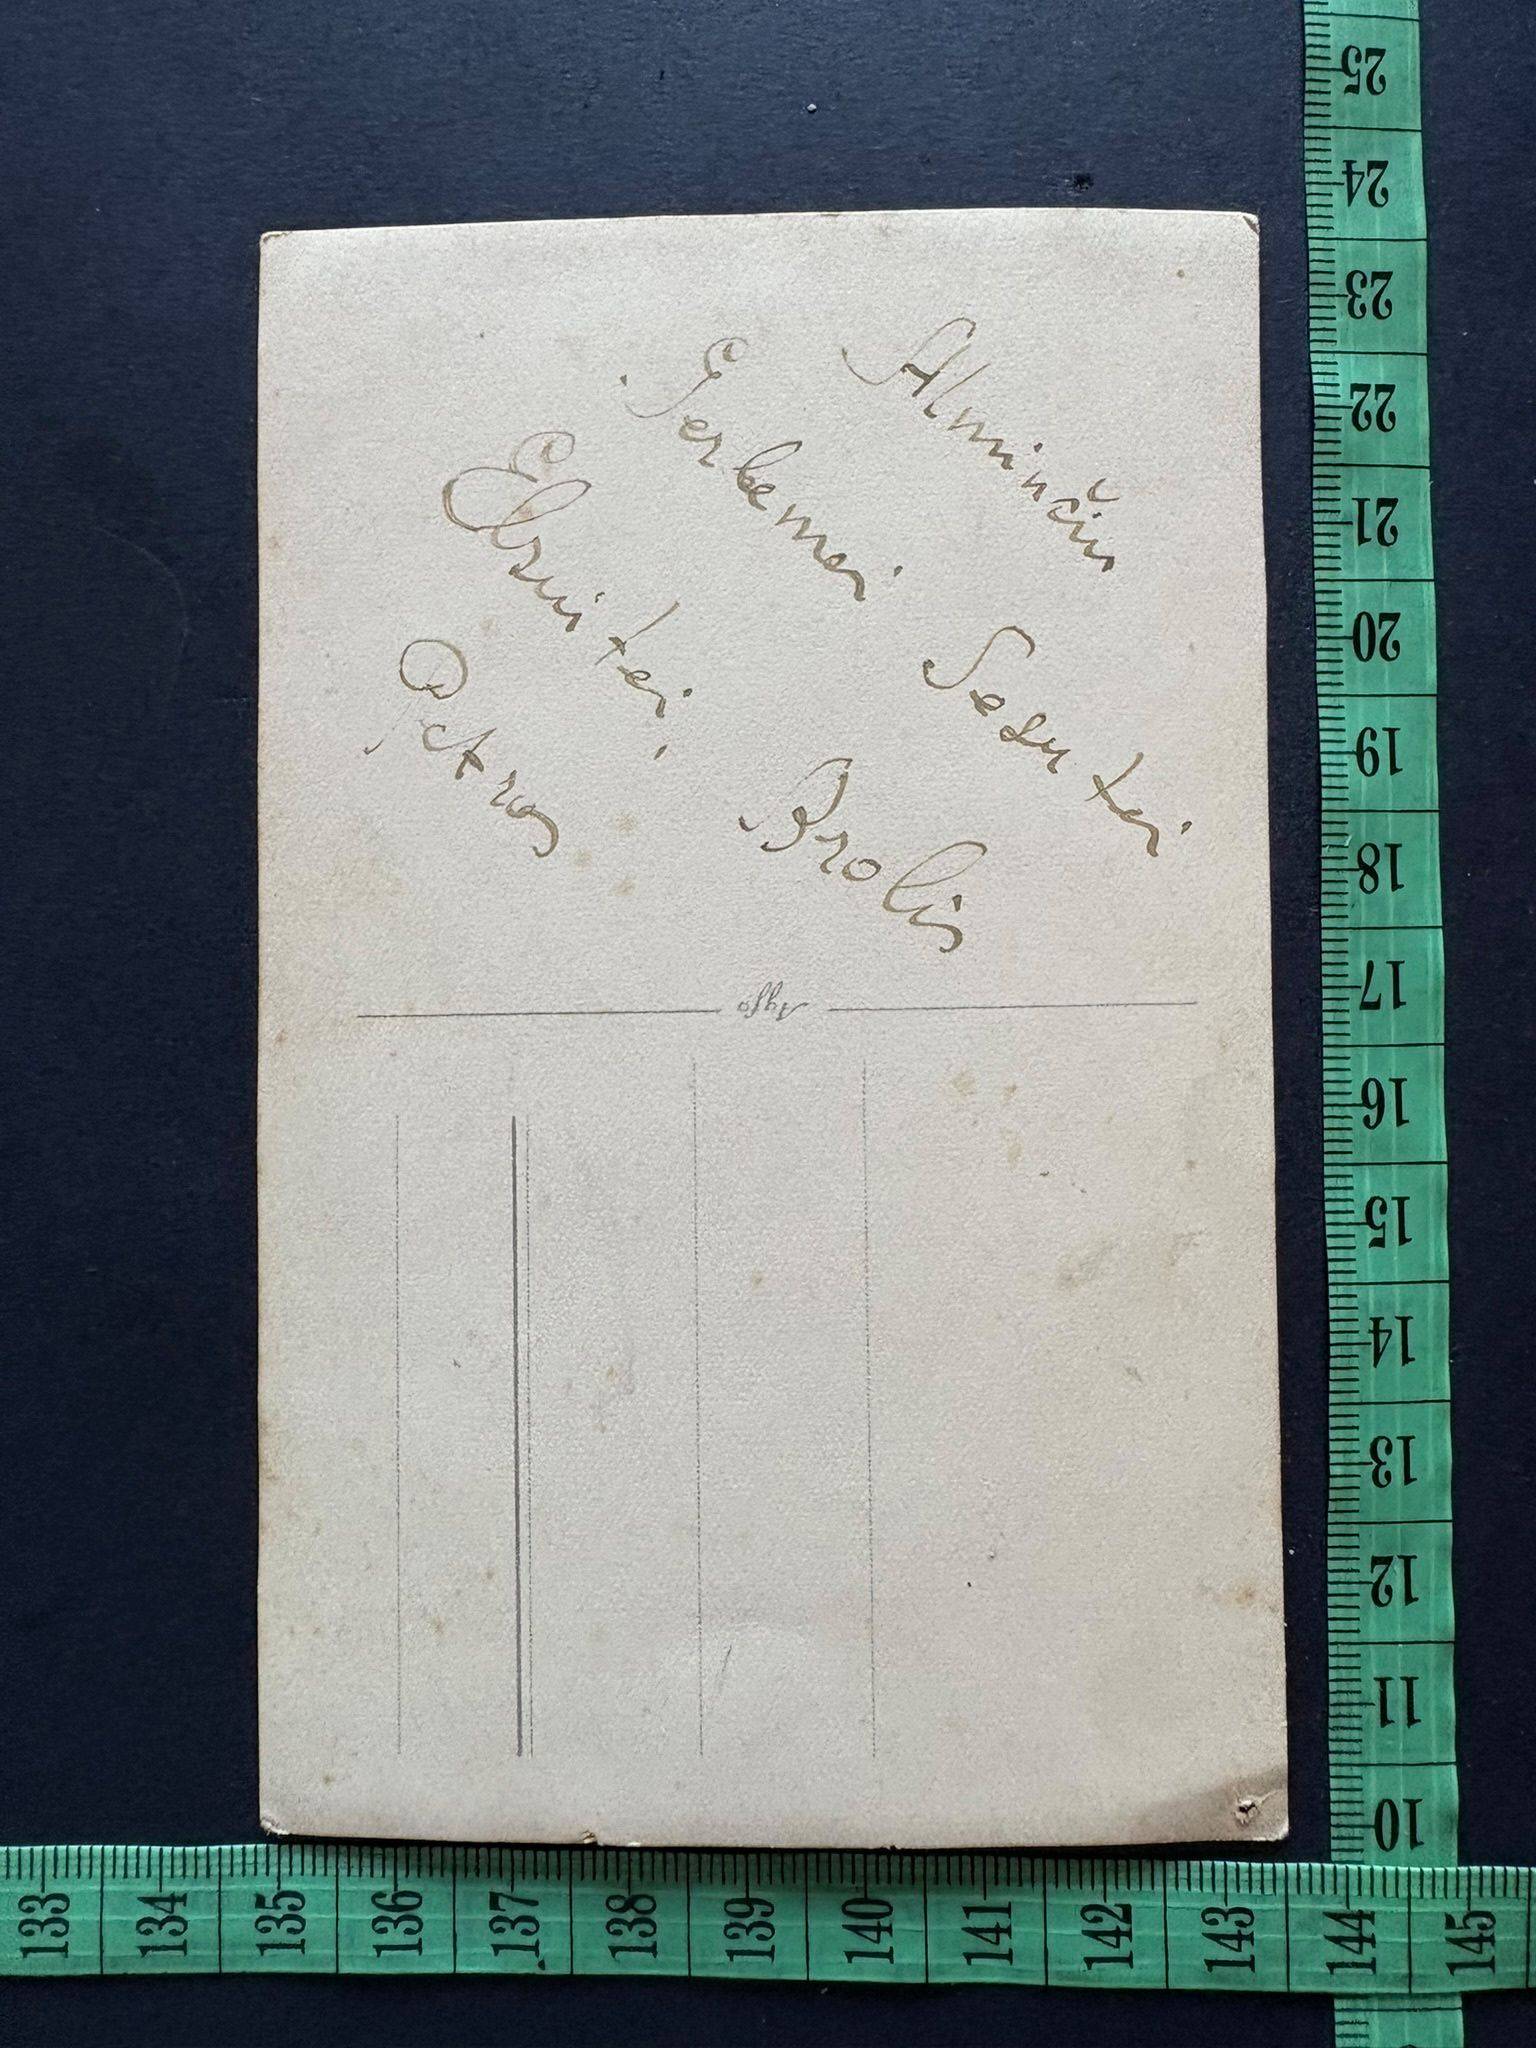 Atminčiu
Gerbemai Sesutei
Elzutei, Brolis
Petras
25
24
23
22
21
20
19
18
17
16
15
14
13
12
11
10
133 134 135 136 137 138 139 140 141 142 143 144 145